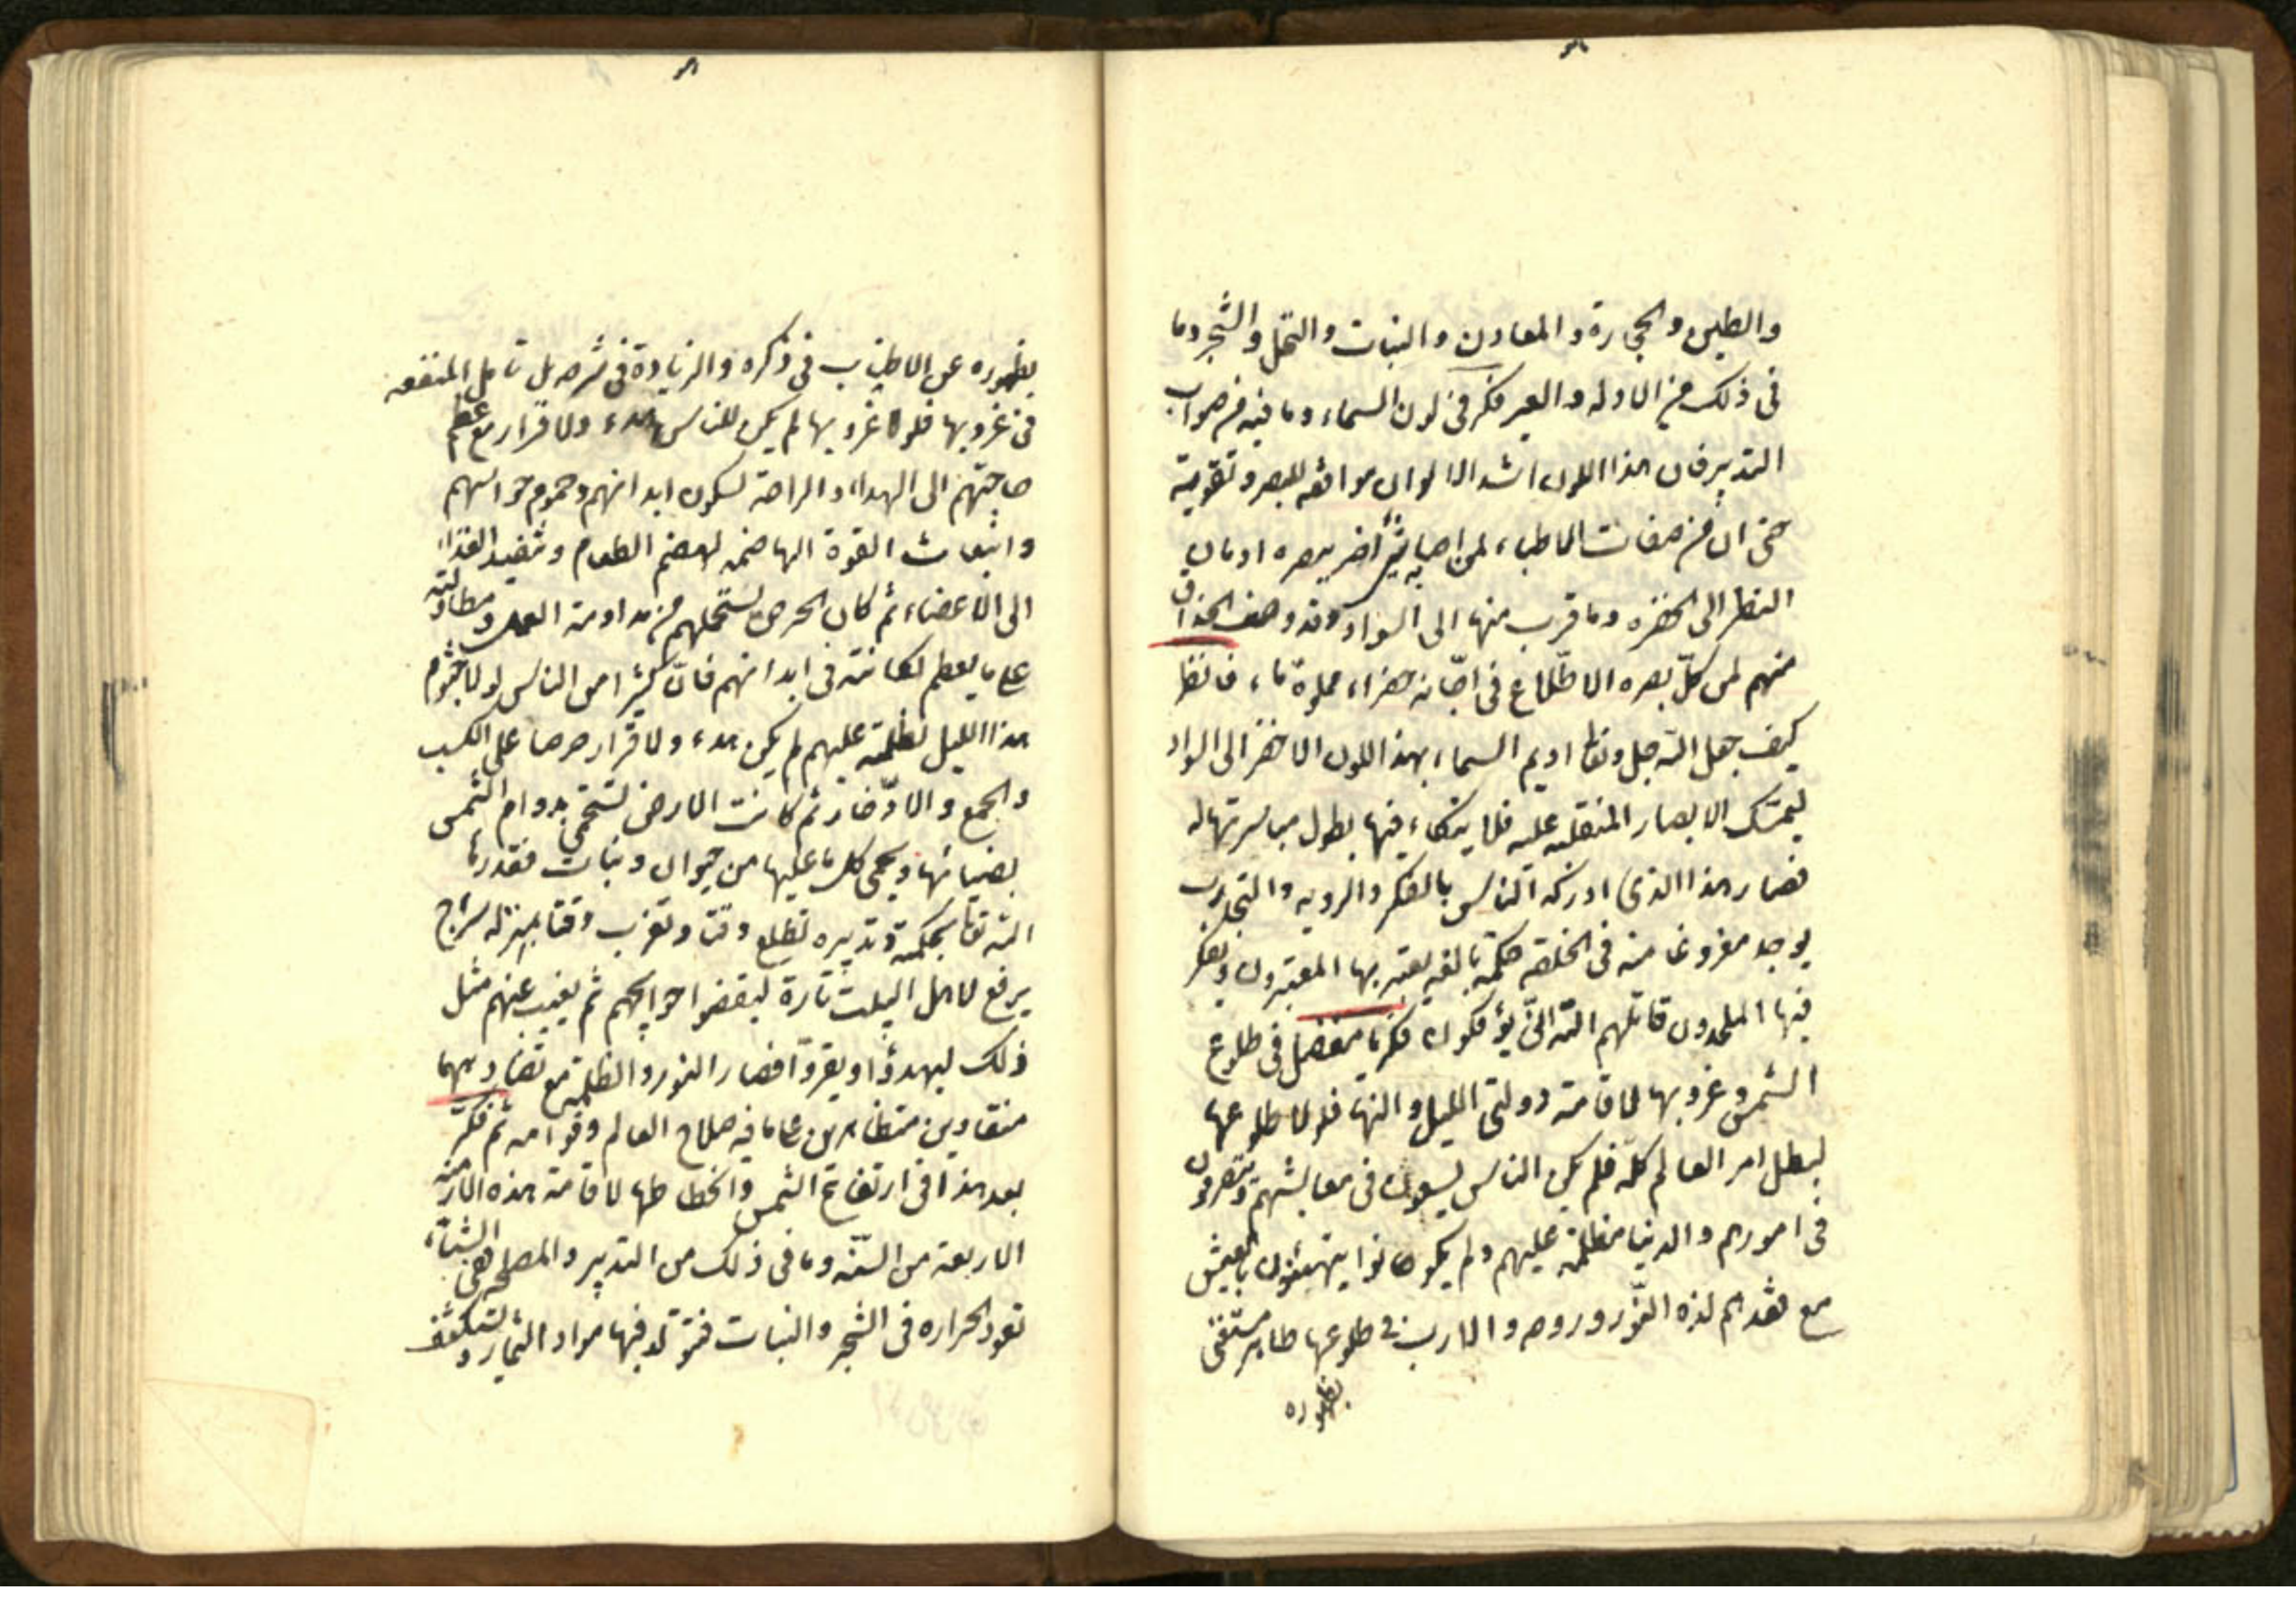 والطين والحجارة والمعادن والنبات والنخل والشجر وما
فى ذلك من الادله والعبر فكر فى لون السماء وما فيه من صواب
التدبير فان هذا اللون اشد الالوان موافقه للبصر وتقوية
حتى ان من صفات الاطباء لمن اصابه شئ اضر ببصره ادمان
النظر الى الخضره وما قرب منها الى السواد وقد وصف الحذاق
منهم لمن كلّ بصره الاطّلاع فى اجّانه خضراء مملوة ماء فانظر
كيف جعل الله جل وتعا اديم السماء بهذا اللون الاخضر الى السواد
ليمسك الابصار المنقلبه عليه فلا ينكاء فيها بطول مباشرتها له
فصار هذا الذى ادركه الناس بالفكر والرويه والتجارب
يوجد مفروغا منه فى الخلقه حكمة بالغه ليعتبر بها المعتبرون ويفكر
فيها الملحدون قاتلهم الله انّى يؤفكون فكر يا مفضل فى طلوع
الشمس وغروبها لاقامة دولتى الليل والنهار فلولا طلوعها
لبطل امر العالم كلّه فلم يكن الناس يسعون فى معايشهم ويتصرفون
فى امورهم والدنيا مظلمة عليهم ولم يكونوا يتهنئون بالعيش
مع فقدهم لذه النّور وروحه والارب فى طلوعها ظاهر مستغنى
بظهوره
بظهوره عن الاطناب فى ذكره والزيادة فى شرحه بل تامل المنفعه
فى غروبها فلولا غروبها لم يكن للناس هدء ولا قرار مع عظم
حاجتهم الى الهداء والراحة لسكون ابدانهم وجموم حواسهم
وانبعاث القوة الهاضمه لهضم الطعام وتنفيد الغذاء
الى الاعضاء ثم كان الحرص يستحملهم من مداومة العمل ومطاولته
على ما يعظم نكايته فى ابدانهم فانّ كثيرا من الناس لولا جثوم
هذا الليل لظلمته عليهم لم يكن هدء ولا قرار حرصا على الكسب
والجمع والادّخار ثم كانت الارض تستحمى بدوام الشمس
بضيائها ويحمى كل ما عليها من حيوان ونبات فقدرها
الله تعا بحكمته وتدبيره تطلع وقتا وتغرب وقتا بمنزله سراج
يرفع لاهل البيت تارة ليقضوا حوايجهم ثم يغيب عنهم مثل
ذلك ليهدؤا ويقروّا فصار النور والظلمه مع تضادهما
منقادين متظاهرين على ما فيه صلاح العالم وقوامه ثم فكّر
بعد هذا فى ارتفاع الشمس وانحطاطها لاقامة هذه الازمنه
الاربعة من السّنه وما فى ذلك من التدبير والمصلحه ففى الشتاء
تعود الحراره فى الشجر والنبات فيتولد فيها مواد الثمار و